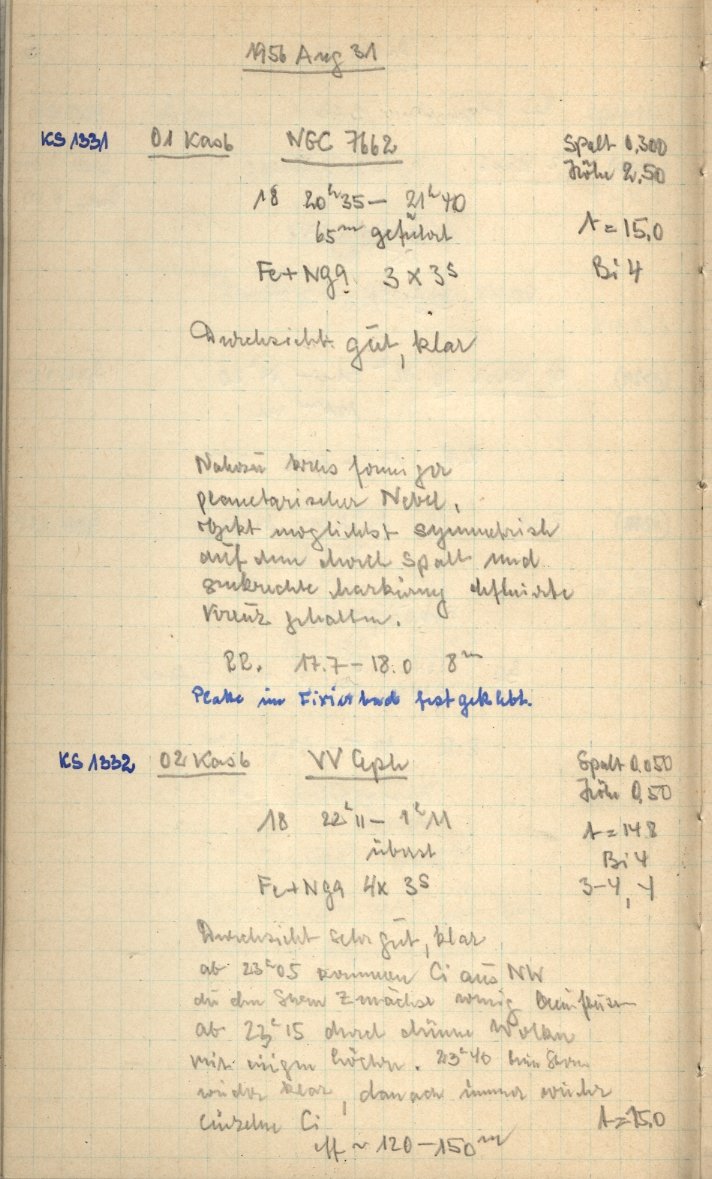 1956 Aug 31
KS 1331 01 Kasb NGC 7662 Spalt 0,300
Höhe 2.50
18 20ʰ35 – 21ʰ40
65ᵐ geführt t = 15,0
Fe+Ng9 3 x 3ˢ Bi 4
Durchsicht gut, klar
Nahezu kreisförmiger
planetarischer Nebel,
Objekt möglichst symmetrisch
auf dem durch Spalt und
senkrechte Markierung definierte
Kreuz gehalten.
17.7 – 18.0 8ᵐ
Platte im Fixierbad festgeklebt.
KS 1332 02 Kasb VV Cph Spalt 0.050
Höhe 0,50
18 22ʰ11 – 1ʰ11 t = 14.8
Bi 4
Fe+Ng9 4x 3ˢ 3–4, 4
Durchsicht sehr gut, klar
ab 23ʰ05 kommen Ci aus NW
die den Stern zunächst wenig
ab 23ʰ15 durch dünne Wolken
mit einigen Löchern. 23ʰ40 beim Stern
wieder klar, danach immer wieder
einzelne Ci t = 15.0
eff ~ 120 – 150ᵐ